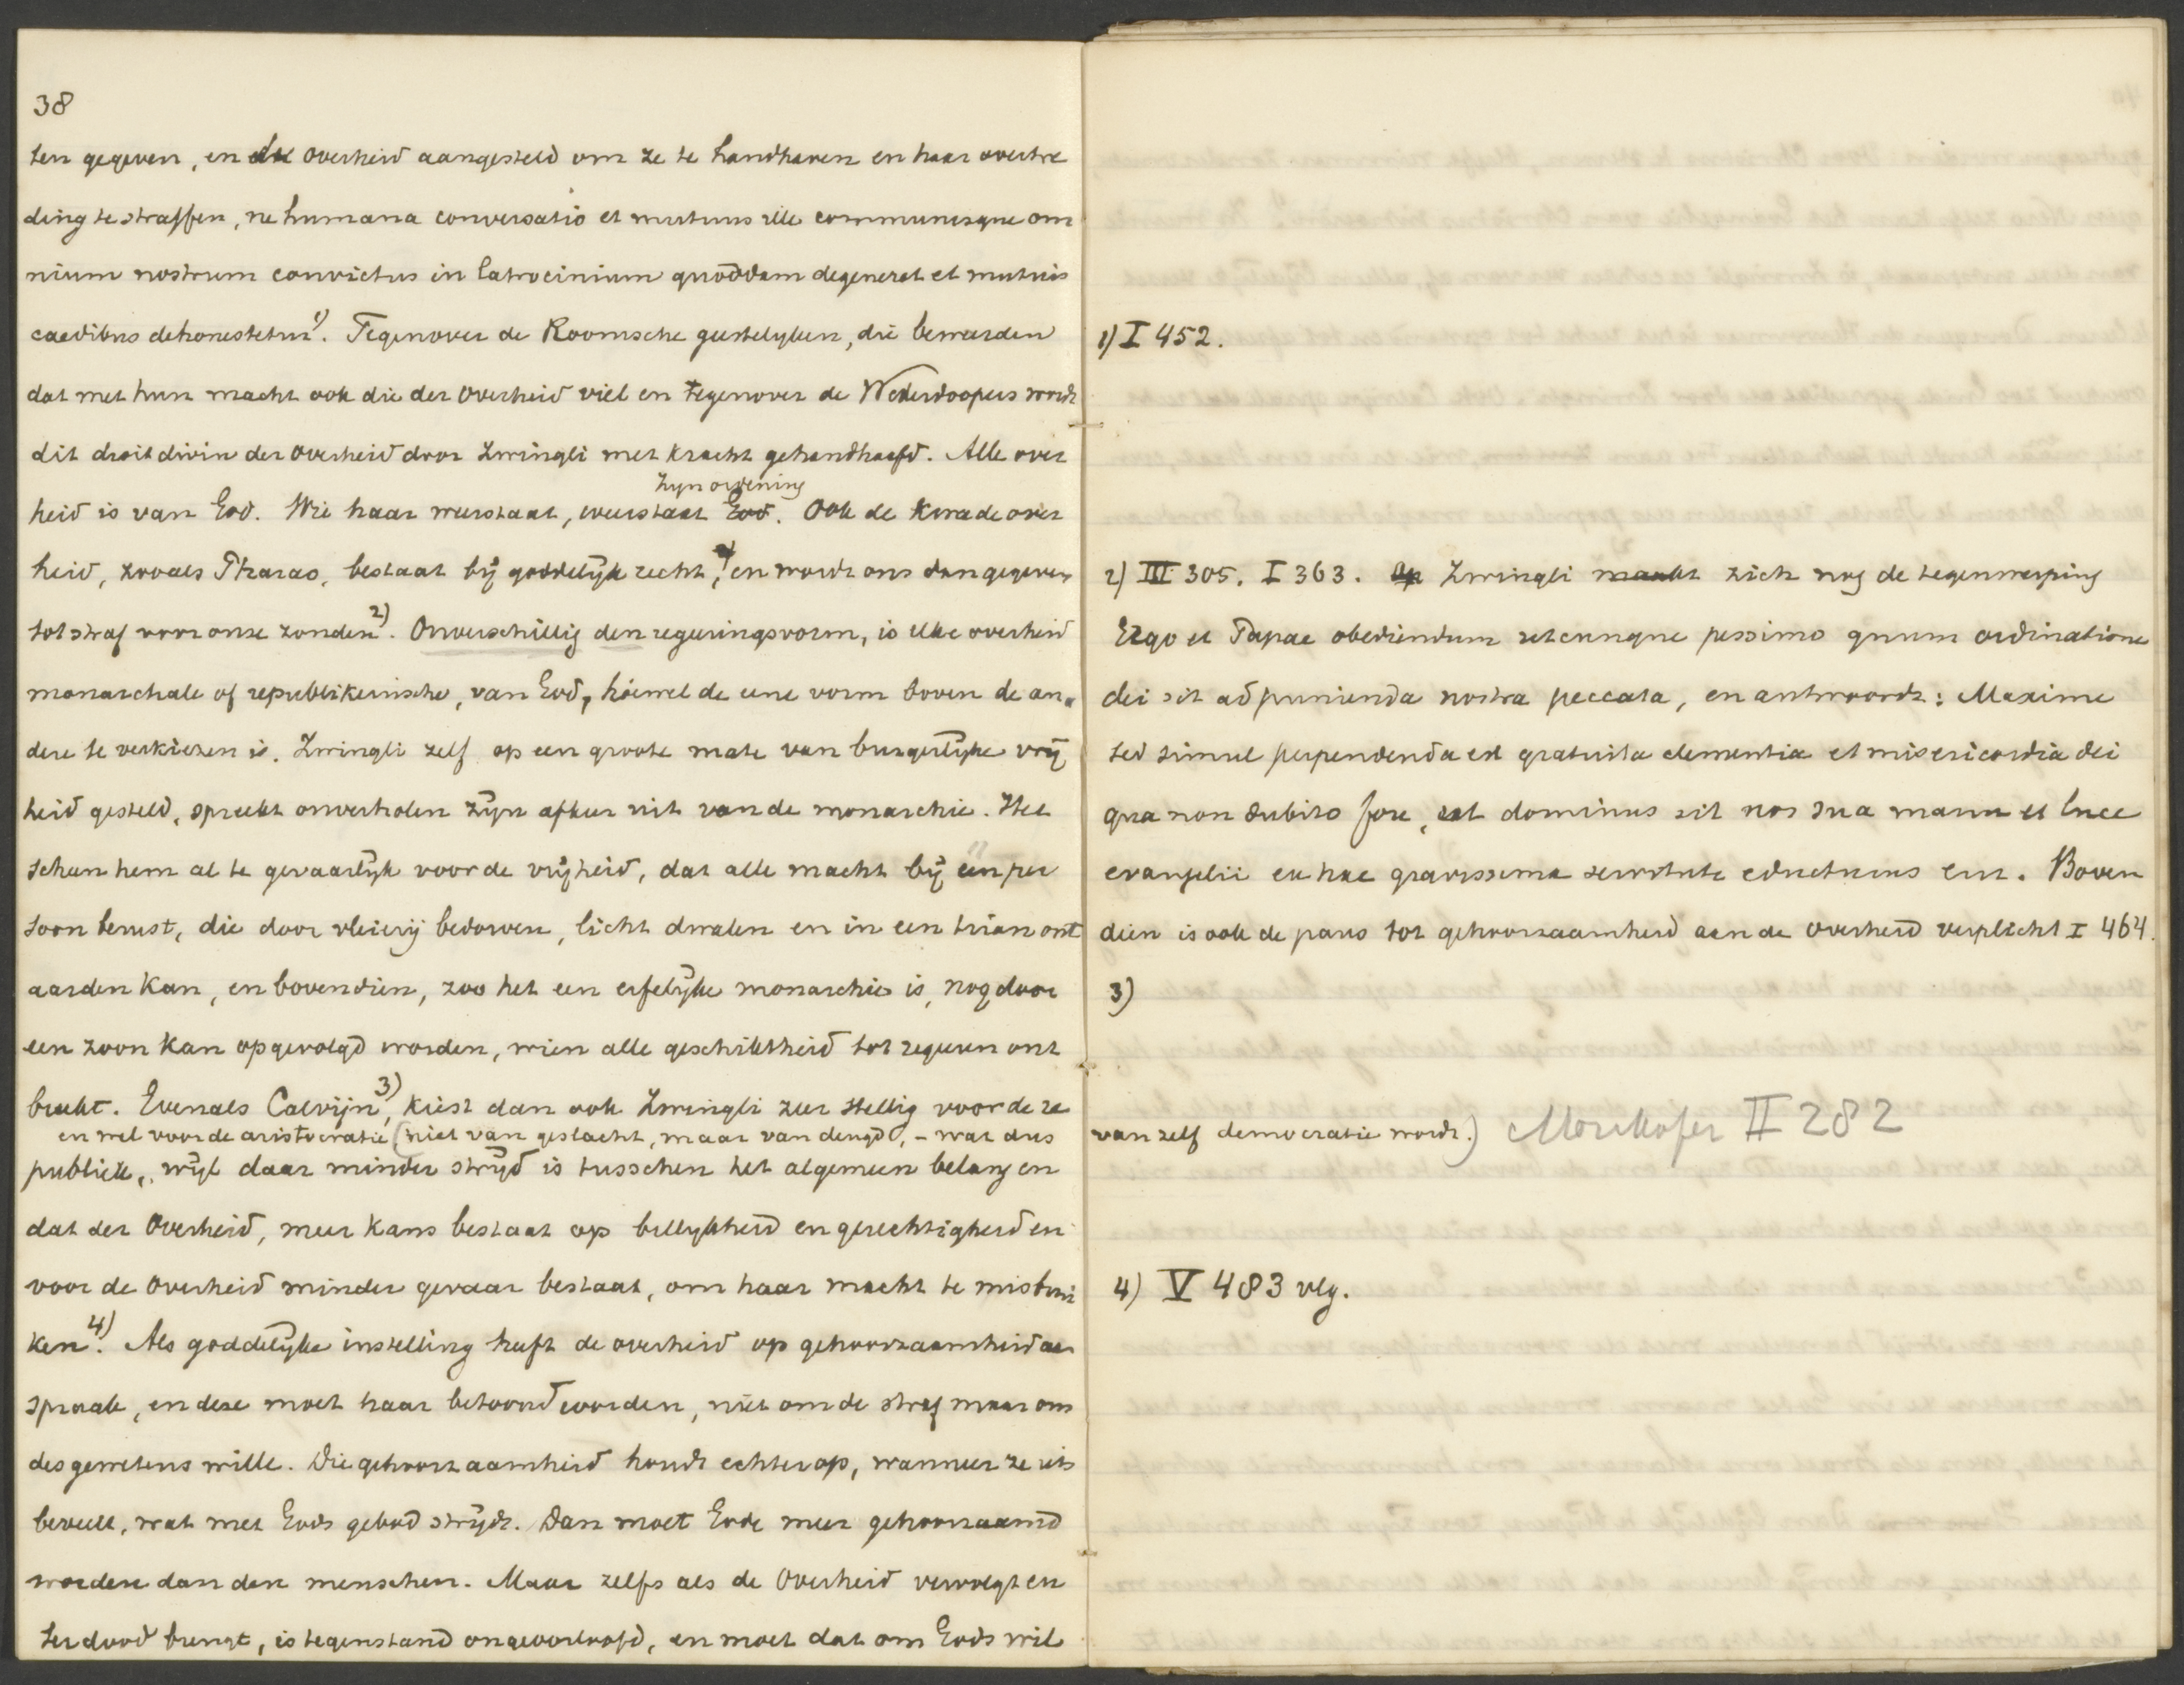 38
ten gegeven, en de overheid aangesteld om ze te handhaven en haar overtre
ding te straffen, ne humana conversatio et mutuus ille communisque om
nium nostrum convictus in latrocinium quoddam degeneret et mutuis
caedibus dehonestetur 1). Tegenover de Roomsche geestelyken, die beweerden
dat met hun macht ook die der Overheid viel en tegenover de Wederdoopers wordt
dit droit divin der overheid door Zwingli met kracht gehandhaafd. Alle over
Zyn ordening
heid is van God. Wie haar weerstaat, weerstaat God. Ook de kwade over
heid, zooals Pharao, bestaat bij goddelijk recht, en wordt ons dan gegeven
tot straf voor onze zonden 2). Onverschillig den regeeringsvorm, is elke overheid
monarchale of republikeinsche, van God, hoewel de eene vorm boven de an-
dere te verkiezen is. Zwingli zelf op een groote mate van burgerlijke vrij
heid gesteld, spreekt onverholen zijn afkeer uit van de monarchie. Het
scheen hem al te gevaarlijk voor de vrijheid, dat alle macht bij één per
soon berust, die door vleierij bedorven, licht dwalen en in een tiran ont
aarden kan, en bovendien, zoo het een erfelijke monarchie is, nog door
een zoon kan opgevolgd worden, wien alle geschiktheid tot regeeren ont
breekt. Evenals Calvijn 3), kiest dan ook Zwingli zeer stellig voor de re
en wel voor de aristocratie (niet van geslacht, maar van deugd, - wat dus
publiek, wijl daar minder strijd is tusschen het algemeen belang en
dat der Overheid, meer kans bestaat op billykheid en gerechtigheid en
voor de Overheid minder gevaar bestaat, om haar macht te misbrui
ken 4). Als goddelijke instelling heeft de overheid op gehoorzaamheid aan
spraak, en deze moet haar betoond worden, niet om de straf maar om
des gewetens wille. Die gehoorzaamheid houdt echter op, wanneer ze iets
beveelt, wat met Gods gebod strijdt. Dan moet Gode meer gehoorzaamd
worden dan den menschen. Maar zelfs als de Overheid vervolgt en
ter dood brengt, is tegenstand ongeoorloofd, en moet dat om Gods wil
1) I 452.
2) III 305. I 363. Op Zwingli maakt zich nog de tegenwerping
Ergo et Papae obediendum utcunque pessimo quum ordinatione
dei sit ad punienda nostra peccata, en antwoordt: Maxime
sed simul perpendenda est gratuita clementia et misericordia dei
qua non dubito fore, ut dominus sit nos sua manu et luce
evangelii ex hac gravissima servitute educturus enz. Boven
dien is ook de paus tot gehoorzaamheid aan de Overheid verplicht I 464.
3)
van zelf democratie wordt.) Mörikofer II 282
4) V 483 vlg.